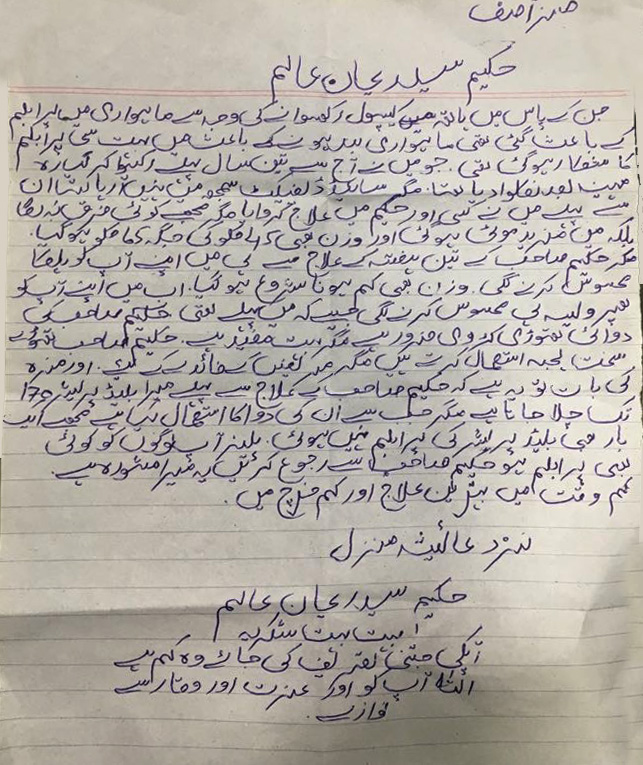 مسز آصف
حکیم سید ریحان عالم
جن کے پاس میں بازو میں کیپسول رکھوانے کی وجہ سے ماہواری میں پرابلم
کے باعث گئی تھی ماہواری بند ہونے کے باعث میں بہت سی پرابلم
کا شکار ہو گئی تھی۔ جو میں نے آج سے تین سال پہلے رکھوا کر گیارہ
مہینے بعد نکلوا دیا تھا۔ مگر سائیڈ افیکٹ سمجھ میں نہیں آ رہا تھا ان
سے پہلے میں نے کئی اور حکیم میں علاج کروایا مگر مجھے کوئی فرق نہ پڑا
بلکہ میں مزید موٹی ہو گئی اور وزن بھی کلو کی جگہ کلو ہو گیا۔
مگر حکیم صاحب کے تین ہفتہ کے علاج سے ہی میں اپنے آپ کو ہلکا
محسوس کرنے لگی۔ وزن بھی کم ہونا شروع ہو گیا۔ اب میں اپنے آپ کو
پھر ویسے ہی محسوس کرنے لگی جیسے کہ میں پہلے تھی حکیم صاحب کی
دوائی تھوڑی کڑوی ضرور ہے مگر بہت مفید ہے۔ حکیم صاحب تھوڑے
سخت لہجہ استعمال کرتے ہیں مگر مریضوں کے فائدے کے لیے۔ اور مزہ
کی بات تو یہ ہے کہ حکیم صاحب کے علاج سے پہلے میرا بلیڈ پریشر 170
تک چلا جاتا ہے مگر جب سے ان کی دوا کا استعمال کیا ہے مجھے ایک
بار بھی بلیڈ پریشر کی پرابلم نہیں ہوئی۔ پلیز آپ لوگوں کو کوئی
بھی پرابلم ہو حکیم صاحب سے رجوع کریں یہ میرا مشورہ ہے۔
کم وقت میں بہترین علاج اور کم خرچ میں۔
نزد عائشہ منزل
حکیم سید ریحان عالم
آپ بہت بہت شکریہ
آپکی جتنی تعریف کی جائے وہ کم ہے
اللہ آپ کو اور عزت اور وقار سے
نوازے۔